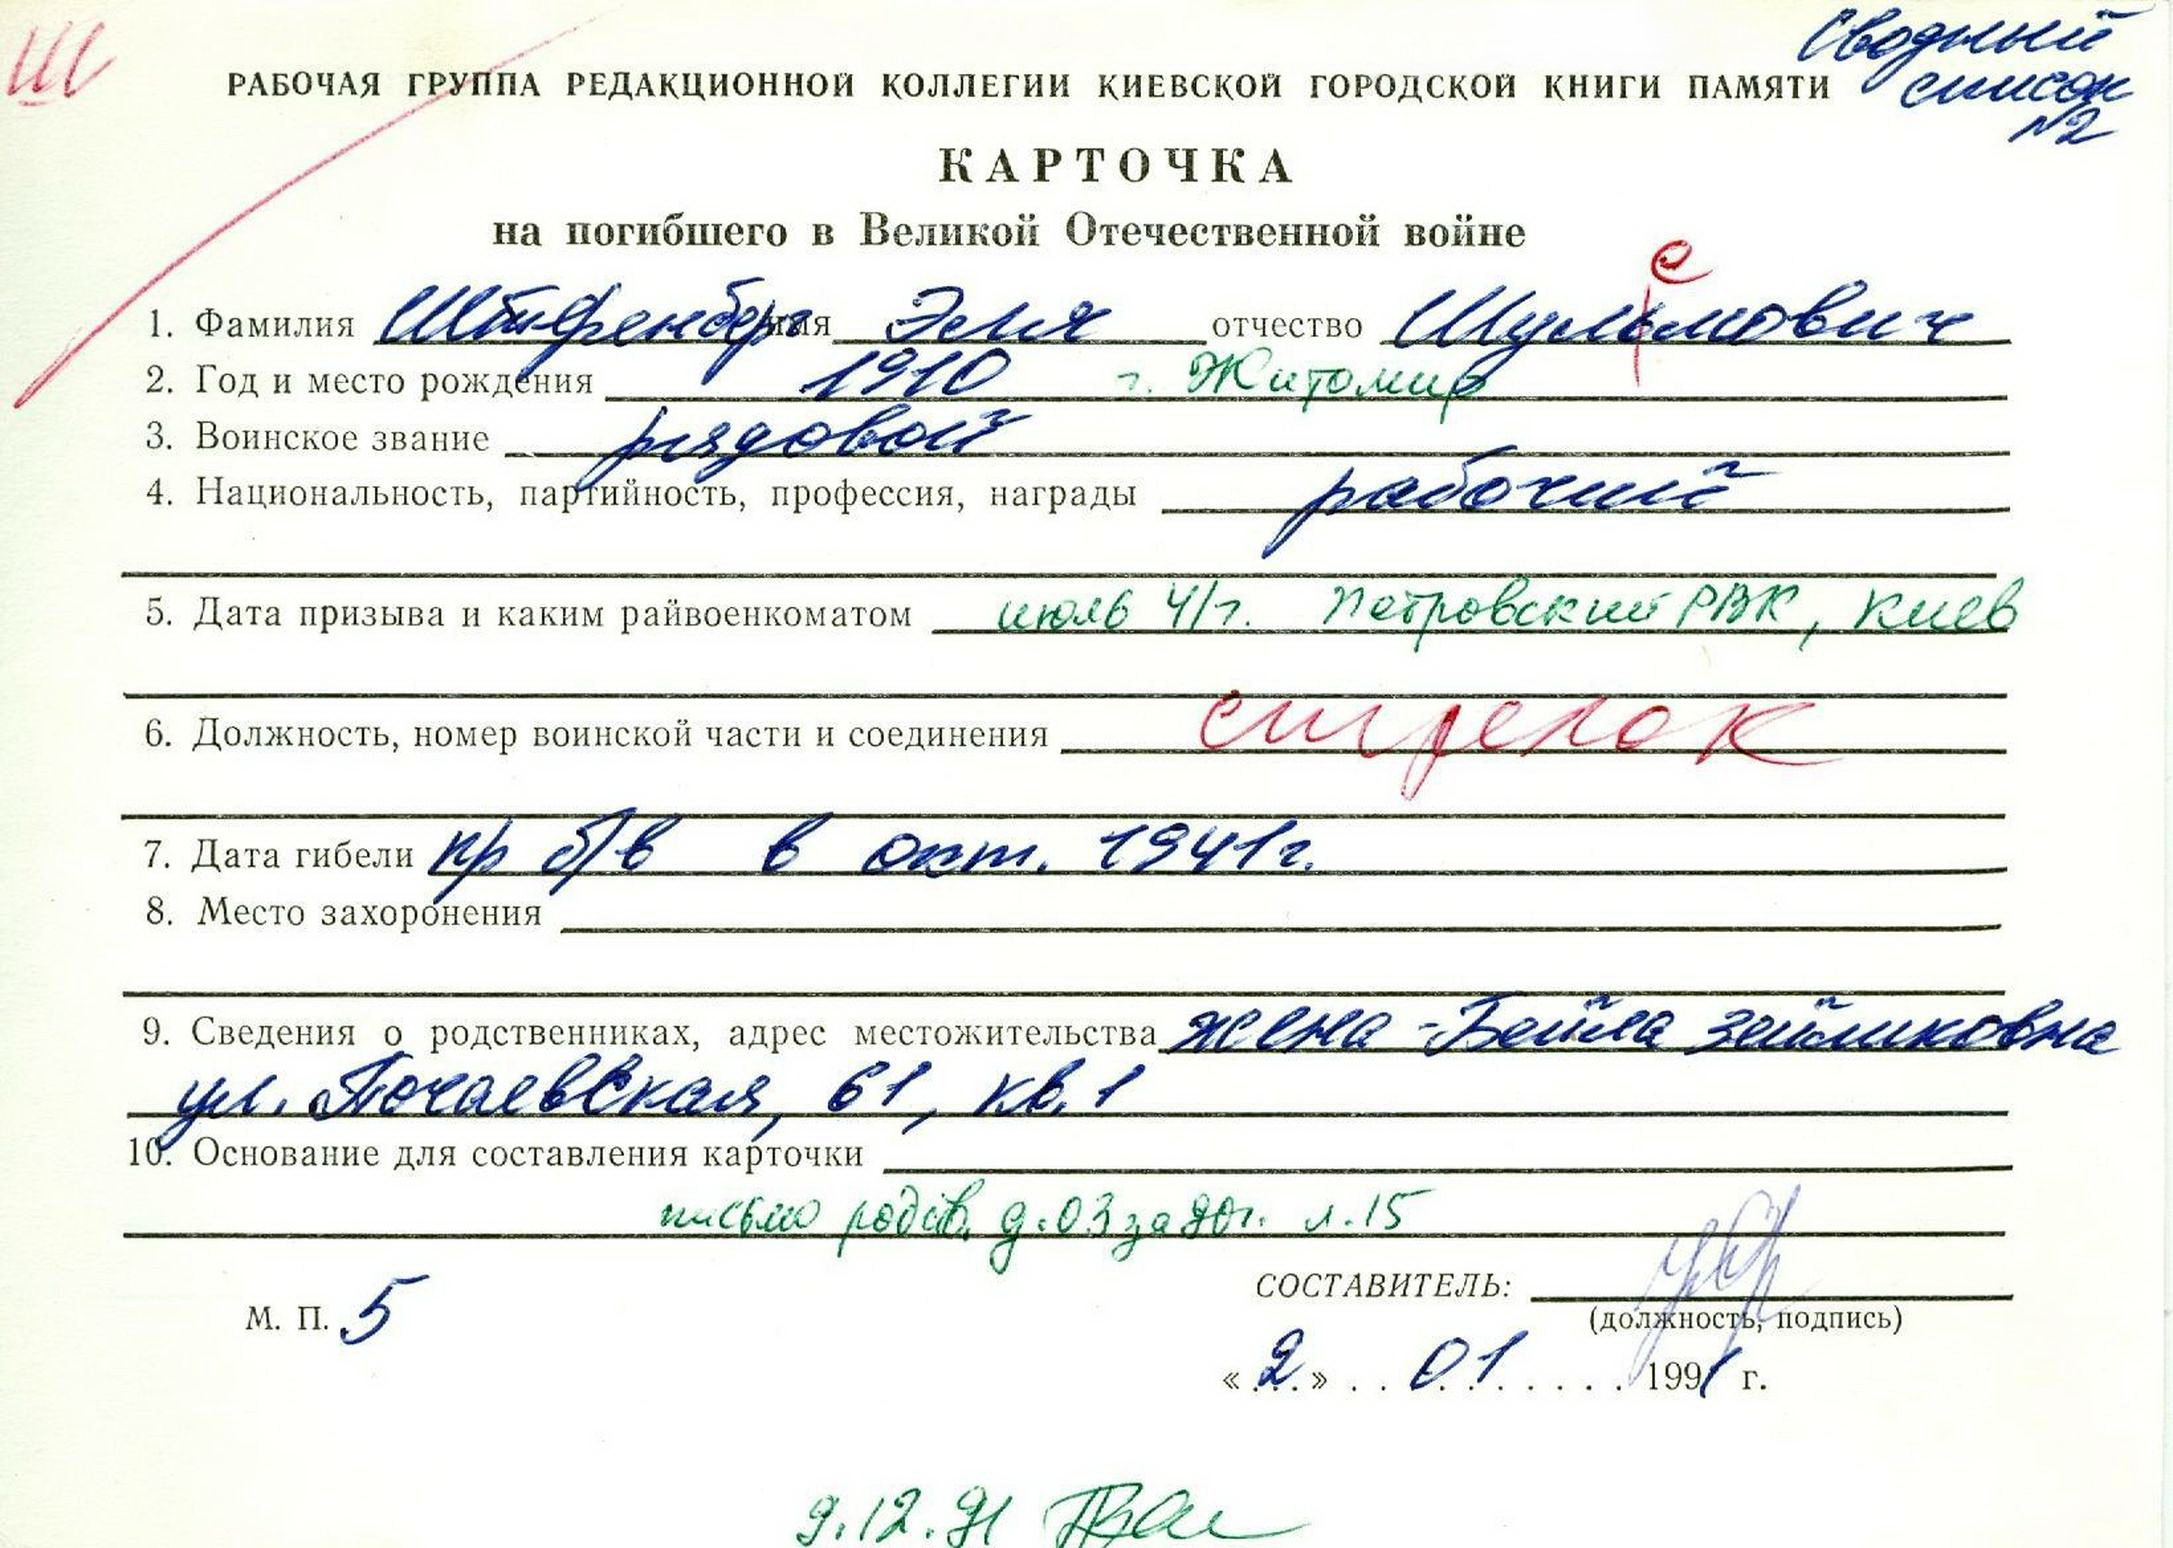 Ш
Сводный
список
№2
РАБОЧАЯ ГРУППА РЕДАКЦИОННОЙ КОЛЛЕГИИ КИЕВСКОЙ ГОРОДСКОЙ КНИГИ ПАМЯТИ
КАРТОЧКА
на погибшего в Великой Отечественной войне
е
1. Фамилия Штифенберг имя Эля отчество Шульмович
2. Год и место рождения 1910 г. Житомир
3. Воинское звание рядовой
4. Национальность, партийность, профессия, награды рабочий
5. Дата призыва и каким райвоенкоматом июль 41г. Петровский РВК, Киев
6. Должность, номер воинской части и соединения стрелок
7. Дата гибели пр б/в в окт. 1941г.
8. Место захоронения
9. Сведения о родственниках, адрес местожительства жена - Бейла Зейликовна
ул. Почаевская, 61, кв. 1
10. Основание для составления карточки
письмо родств. д.03 за 90г. л.15
СОСТАВИТЕЛЬ:
М. П. 5
(должность, подпись)
«2» 01 1991 г.
9.12.91